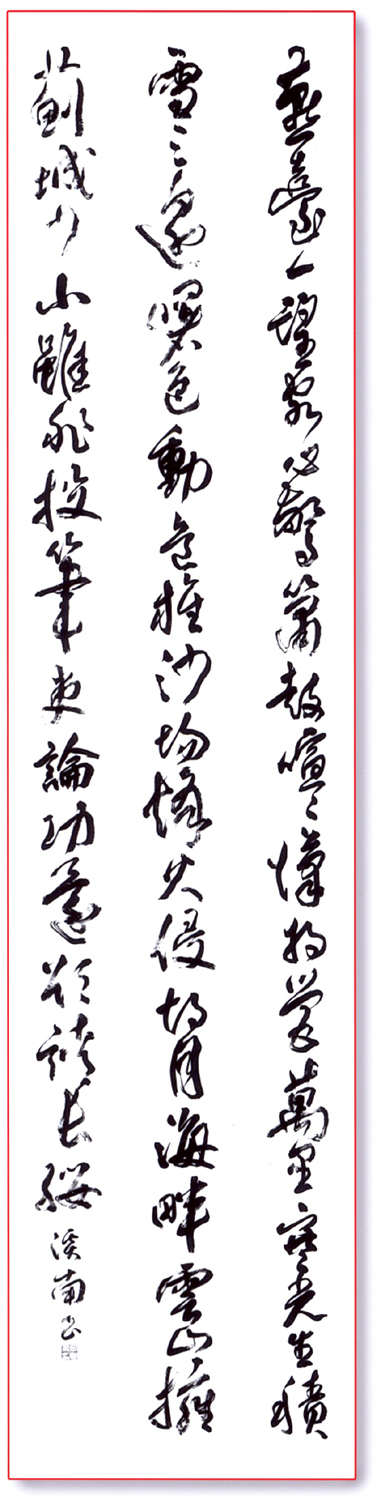 燕臺一望客心驚簫鼓喧〻漢將營萬里寒光生積
雪三邊曙色動危旌沙場烽火侵胡月海畔雲山擁
薊城少小雖非投筆吏論功還欲請長纓 溪南書